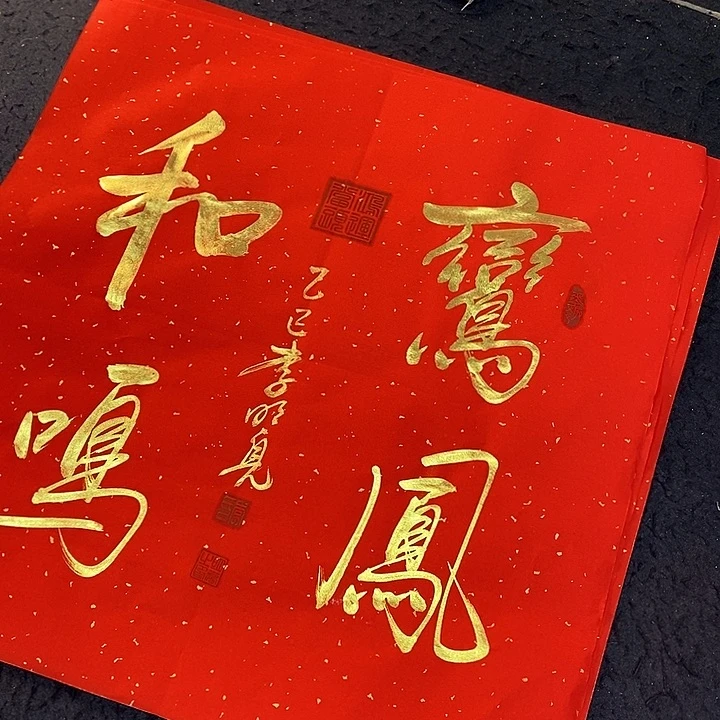 鸞鳳
和鳴
乙巳李明見